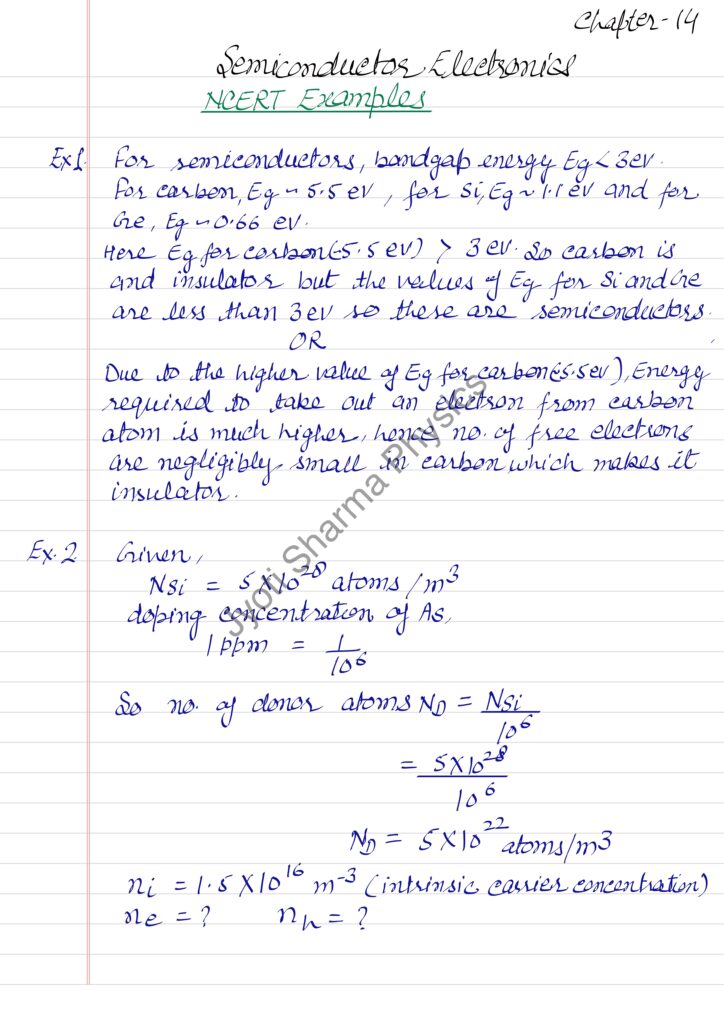 Chapter-14
Semiconductor Electronics
NCERT Examples
Ex1. For semiconductors, bandgap energy Eg < 3ev.
For carbon, Eg ~ 5.5 ev, for Si, Eg ~ 1.1 ev and for
Ge, Eg ~ 0.66 ev.
Here Eg for carbon (~5.5 ev) > 3 ev. So carbon is
and insulator but the values of Eg for Si and Ge
are less than 3 ev so these are semiconductors.
OR
Due to the higher value of Eg for carbon (~5.5 ev), Energy
required to take out an electron from carbon
atom is much higher, hence no. of free electrons
are negligibly small in carbon which makes it
insulator.
Ex.2 Given,
NSi = 5 X 10^28 atoms/m^3
doping concentration of As,
1 ppm = 1/10^6
So no. of donor atoms ND = NSi/10^6
= 5X10^28/10^6
ND = 5X10^22 atoms/m3
ni = 1.5 X 10^16 m^-3 (intrinsic carrier concentration)
ne = ? nh = ?
Jyoti Sharma Physics